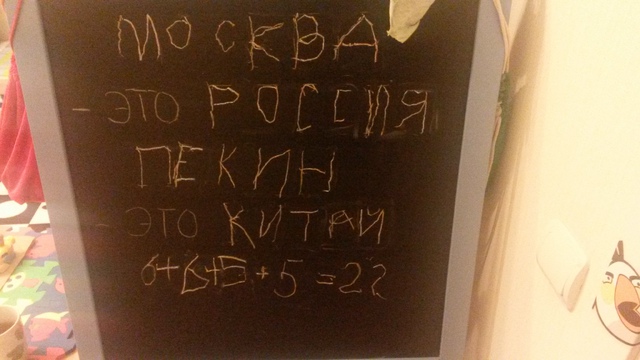 МОСКВА
- ЭТО РОССИЯ
ПЕКИН
- ЭТО КИТАЙ
6+6+5+5=22